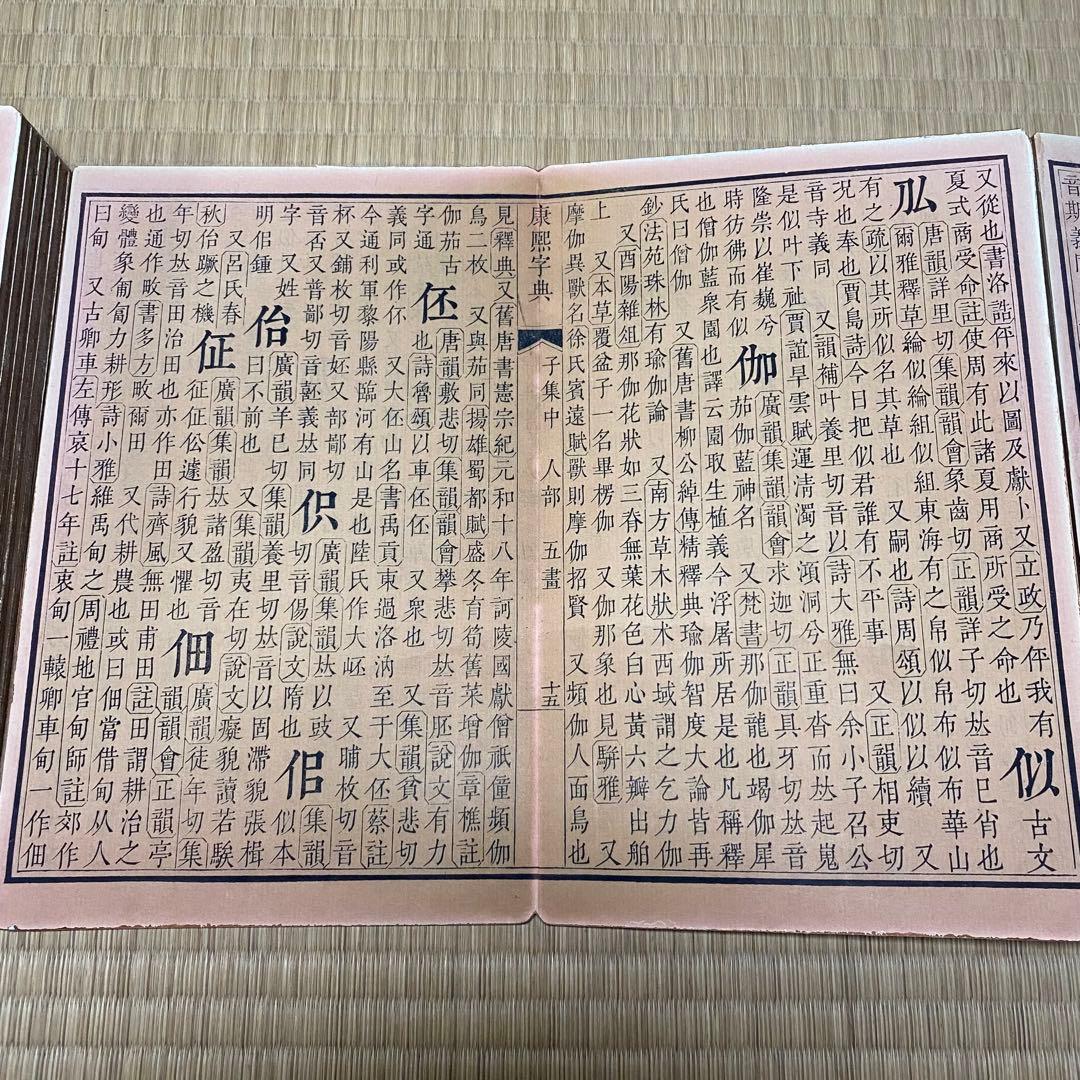 音期義同
又從也書洛誥伻來以圖及獻卜又立政乃伻我有
夏式商受命註使周有此諸夏用商所受之命也
似 古文
唐韻詳里切集韻韻會象齒切正韻詳子切𠀤音巳肖也
爾雅釋草綸似綸組似組東海有之帛似帛布似布華山
有之疏以其所似名其草也 又嗣也詩周頌以似以續 又
況也奉也賈島詩今日把似君誰有不平事 又正韻相吏切
音寺義同 又韻補叶養里切音以詩大雅無曰余小子召公
是似叶下祉賈誼旱雲賦運淸濁之澒洞兮正重沓而𠀤起嵬
隆崇以崔巍兮
時彷彿而有似
伽
廣韻集韻韻會求迦切正韻具牙切𠀤音
茄伽藍神名 又梵書那伽龍也竭伽犀
也僧伽藍衆園也譯云園取生植義今浮屠所居是也凡稱釋
氏曰僧伽 又舊唐書柳公綽傳精釋典瑜伽智度大論皆再
鈔法苑珠林有瑜伽論 又南方草木狀朮西域謂之乞力伽
又酉陽雜俎那伽花狀如三春無葉花色白心黃六瓣出舶
上 又本草覆盆子一名畢楞伽 又伽那象也見駢雅 又
摩伽異獸名徐氏賓遠賦獸則摩伽招賢 又頻伽人面鳥也
康熙字典 子集中 人部 五畫 十五
見釋典又舊唐書憲宗紀元和十八年訶陵國獻僧祇僮頻伽
鳥二枚 又與茄同揚雄蜀都賦盛冬育筍舊菜增伽章樵註
伽茄古
字通
伾
唐韻敷悲切集韻韻會攀悲切𠀤音胚說文有力
也詩魯頌以車伾伾 又衆也 又集韻貧悲切
義同或作㐀 又大伾山名書禹貢東過洛汭至于大伾蔡註
今通利軍黎陽縣臨河有山是也陸氏作大岯 又晡枚切音
杯又鋪枚切音妚又部鄙切
音否又普鄙切音嚭義𠀤同
伿
廣韻集韻𠀤以豉
切音傷說文隋也
字 又姓
明佀鍾
佀
似本
字
佁
廣韻羊已切集韻養里切𠀤音以固滯貌張楫
曰不前也 又集韻夷在切說文癡貌讀若騃
又呂氏春
秋佁蹶之機
佂
廣韻集韻𠀤諸盈切音
征佂伀遽行貌又懼也
佃
廣韻徒年切集
韻韻會正韻亭
年切𠀤音田治田也亦作田詩齊風無田甫田註田謂耕治之
也通作畋書多方畋爾田 又代耕農也或曰佃當借甸从人
變體象匍匐力耕形詩小雅維禹甸之周禮地官甸師註郊作
曰甸 又古卿車左傳哀十七年註衷甸一轅卿車甸一作佃